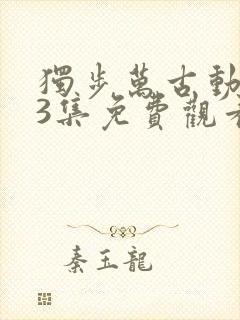 獨步萬古動
3集免費觀看
秦玉龍